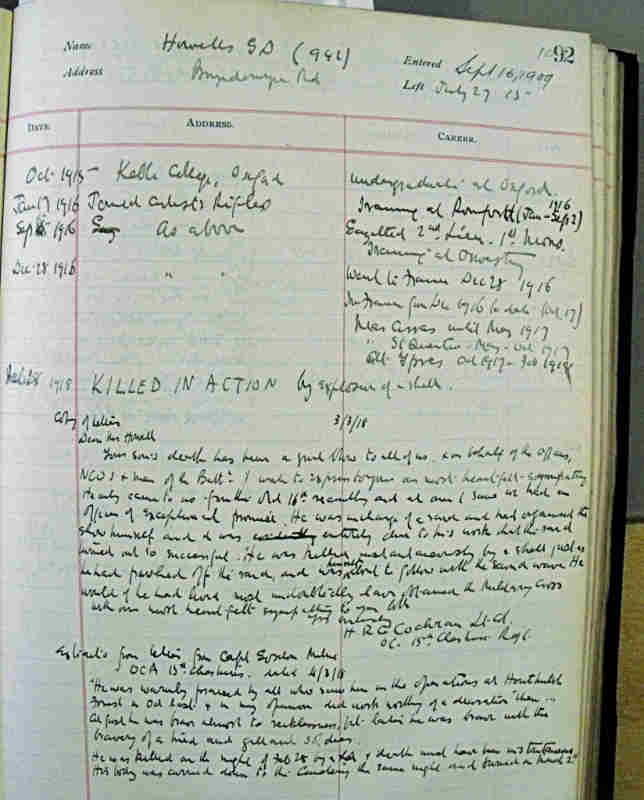 Name Howells G D (942) Entered Sept 16, 1909 92
Address Rd Left July 27 15
DATE. ADDRESS. CAREER.
Oct. 1915 Keble College, Oxford undergraduate at Oxford.
Jan 17 1916 Joined Artists Rifles Training at Romford (Jan - Sept 2) 1916
Sep 1916 As above Gazetted 2nd Lieu. 1st Mons.
Training at Oswestry
Dec 28 1916 " " Went to France Dec 28 1916
In France from Dec 1916 to date (Oct 17)
Near Arras until May 1917
" St Quentin - May - Oct 1917
Ypres Oct 1917 - Feb 1918
Feb 28 1918 KILLED IN ACTION by explosion of a shell.
Copy of letters 3/3/18
Dear Mrs Howells
Your son's death has been a great blow to all of us. & on behalf of the officers,
NCOs & men of the Battn I wish to express to you our most heartfelt sympathy
He only came to us from the 16th recently and at once I saw we had an
officer of exceptional promise. He was in charge of a raid and had organised the
show himself and it was entirely due to his work that the raid
turned out so successful. He was killed instantaneously by a shell just as
he had pushed off the raid, and was himself about to follow with the second wave. He
would if he had lived most undoubtedly have obtained the Military Cross
with our most heartfelt sympathy to you both
yrs sincerely
H R G Cochran Lt Col.
OC. 15th Cheshire Regt.
Extracts from letters from Capt Milne
OCA 15th Cheshires. dated 4/3/18
"He was warmly praised by all who saw him in the operations at Houthulst
Forest in Oct last & in my opinion did work worthy of a decoration then..
he was brave almost to recklessness, he was brave with the
bravery of a kind and gallant
He was killed on the night of Feb 28 by a & death must have been instantaneous.
His body was carried down to the Cemetery the same night and buried on March 2nd